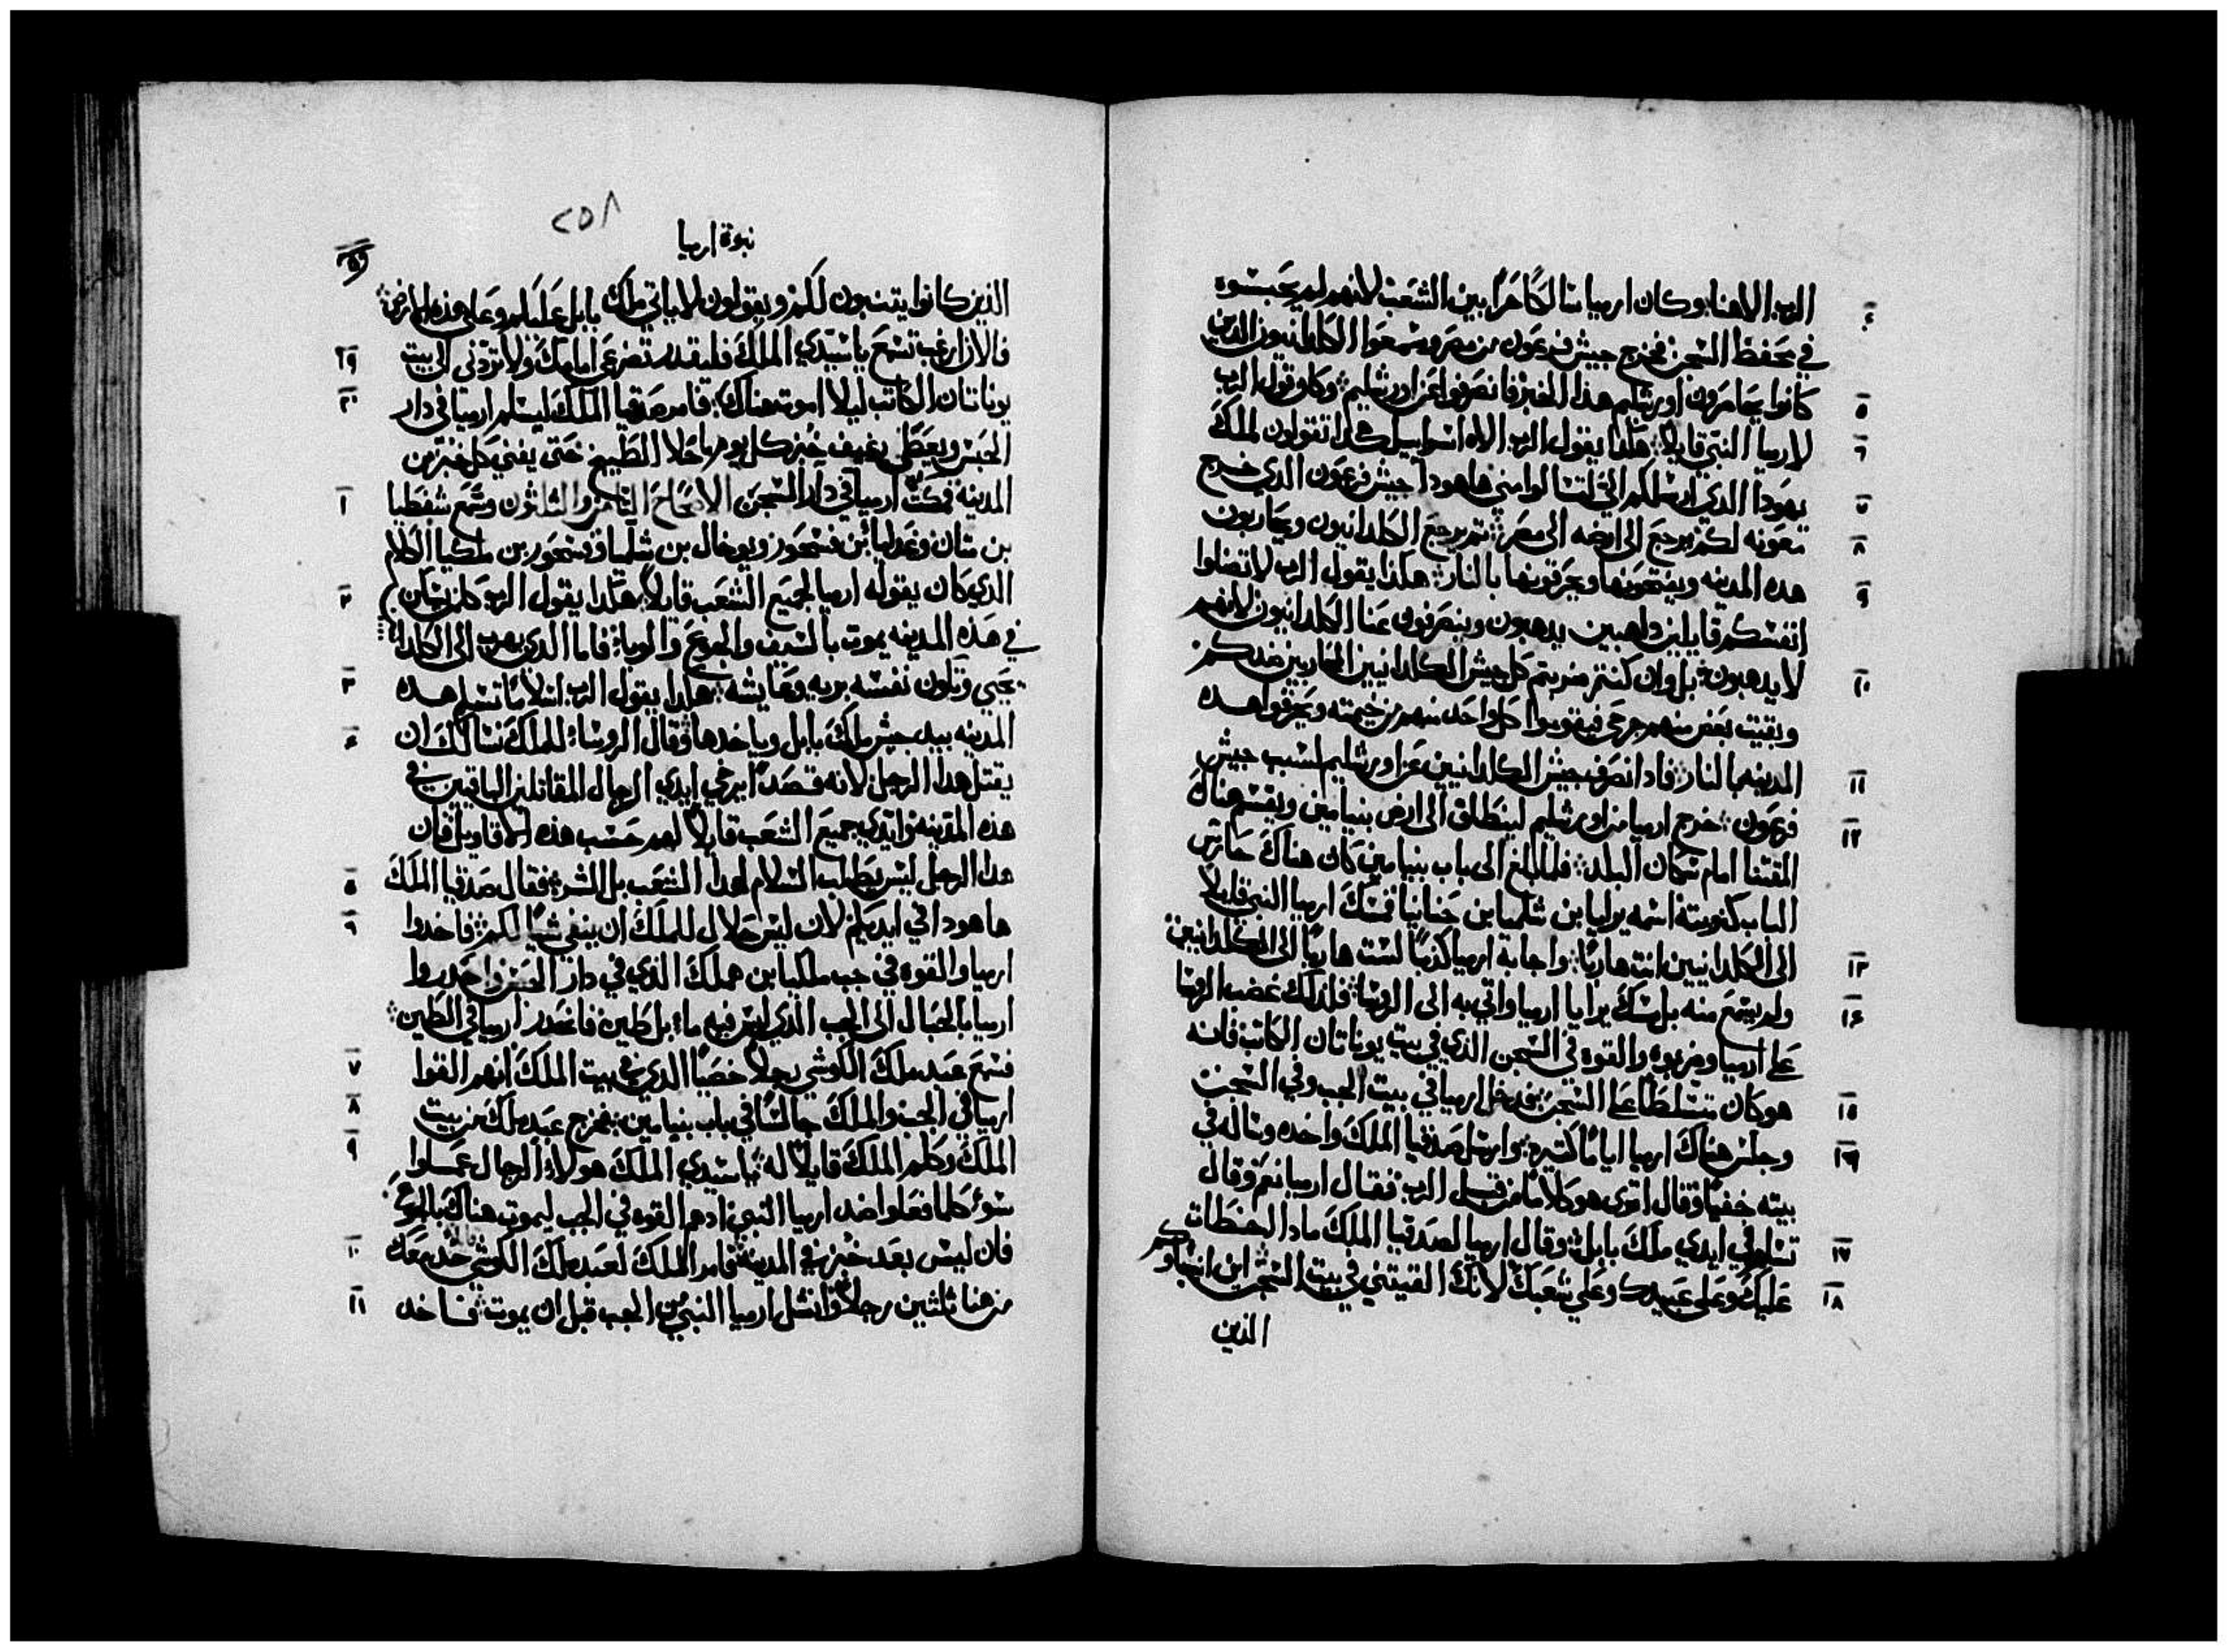 الرب الاهنا وكان ارميا سالكًا حرًا بين الشعب لانهم لم يحبسوه
٤
في محفظ السجن فخرج جيش فرعون من مصر وسمعوا الكلدانيون الدين
كانوا يحاصرون اورشليم هذا الخبر فانصرفوا عن اورشليم وكان قول الرب
٥
لارميا النبي قايلاً هكذا يقول الرب الاه اسراييل هكدا تقولون لملك
٦
يهودا الدي ارسلكم الي لتسالوا مني هاهودا جيش فرعون الدي خرج
٧
معونه لكم يرجع الى ارضه الى مصر تم يرجع الكلدانيون ويحاربون
٨
هده المدينه ويفتحونها ويحرقونها بالنار هكذا يقول الرب لا تضلوا
٩
انفسكم قايلين داهبين يدهبون وينصرفون عنا الكلدانيون لانهم
لا يدهبون بل وان كنتم ضربتم كل جيش الكلدانيين المحاربين ضدكم
١٠
وبقيت بعض منهم جرحى فيقوموا كل واحد منهم من خيمته ويحرقوا هده
المدينه بالنار فاد انصرف جيش الكلدانيين عن اورشليم لسبب جيش
١١
فرعون خرج ارميا من اورشليم لينطلق الى ارض بنيامين ويقسم هناك
١٢
المقتنا امام سكان البلد فلما بلغ الى باب بنيامين كان هناك حارس
الباب كنوبته اسمه يرايا بن شلميا بن حنانيا فمسك ارميا النبي قايلاً
الى الكلدانيين انت هاربًا واجابه ارميا كذبًا لست هاربًا الى الكلدانيين
١٣
ولم يسمع منه بل مسك يرايا ارميا واتي به الى الروسا فلذلك غضب الروسا
١٤
على ارميا وضربوه والقوه في السجن الذي في بيت يوناتان الكاتب فانه
هو كان متسلطًا على السجن فدخل ارميا في بيت الجب وفي السجن
١٥
وجلس هناك ارميا ايامًا كتيره وارسل صدقيا الملك واخده وساله في
١٦
بيته خفيًا وقال اترى هو كلامًا من قبل الرب فقال ارميا نعم وقال
تسلم في ايدي ملك بابل وقال ارميا لصدقيا الملك مادا اخطات
١٧
عليك وعلى عبيدك وعلى شعبك لانك القيتني في بيت السجن اين انبياوكم
١٨
الذين
٢٥٨
نبوة ارميا
الذين كانوا يتنبون لكم ويقولون لا ياتي ملك بابل عليكم وعلى هذه الارض
فالان ارغب تسمع يا سيدي الملك فليقدم تضرعي امامك ولا تردني الى بيت
١٩
يوناتان الكاتب ليلا اموت هناك فامر صدقيا الملك ليسلم ارميا في دار
٢٠
الحبس ويعطى رغيف خبز كل يوم ما خلا الطبيخ حتى يفني كل خبز من
المدينه فمكث ارميا في دار السجن الاصحاح التامن والثلثون وسمع شفطيا
١
بن متان وغدليا بن فسحور ويوخال بن شلميا وفسحور بن ملكيا الكلام
الدي كان يقوله ارميا لجميع الشعب قايلاً هكدا يقول الرب كل من سكن
٢
في هذه المدينه يموت بالسيف والجوع والوبا فاما الدي يهرب الى الكلدا
يحيي وتكون نفسه بريه وعايشه هكدا يقول الرب اسلامًا تسلم هده
٣
المدينه بيد جيش ملك بابل وياخدها وقال الروسا للملك نسالك ان
٤
يقتل هدا الرجل لانه قصدًا يرخي ايدي الرجال المقاتلين الباقيين في
هذه المدينه وايدي جميع الشعب قايلاً لهم حسب هذه الاقاويل فان
هدا الرجل ليس يطلب السلام لهدا الشعب بل الشر فقال صدقيا الملك
٥
ها هودا في ايديكم لان ليس حلال للملك ان ينفي شيًا لكم فاخدوا
٦
ارميا والقوه في جب ملكيا بن هملك الذي في دار الحبس واحدروا
ارميا بالحبال الى الجب الذي ليس فيه ماء بل طين فانحدر ارميا في الطين
فسمع عبد ملك الكوشي رجلاً خصيًا الدي في بيت الملك انهم القوا
٧
ارميا في الجب والملك جالسًا في باب بنيامين فخرج عبد ملك من بيت
٨
الملك وكلم الملك قايلاً له يا سيدي الملك هولاء الرجال عملوا
٩
سوء كلما فعلوا ضد ارميا النبي ادهم القوه في الجب ليموت هناك بالجوع
فان ليس بعد خبز في المدينه فامر الملك لعبد ملك الكوشي خد معك
١٠
من هنا ثلثين رجلاً وانشل ارميا النبي من الجب قبل ان يموت فاخد
١١